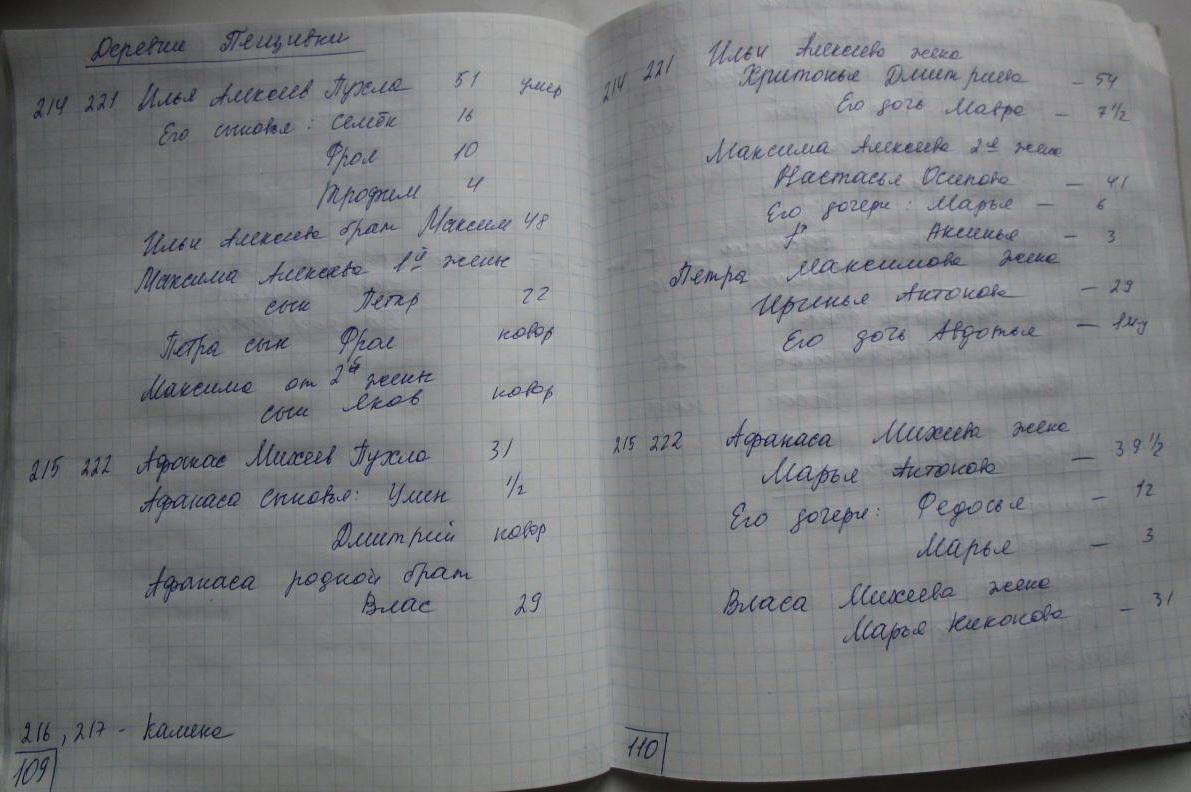 Деревня Пещивки
214 221 Илья Алексеев Пухла 51 умер
Его сыновья: Семён 16
Фрол 10
Трофим 4
Ильи Алексеева брат Максим 48
Максима Алексеева 1й жены
сын Петр 22
Петра сын Фрол новор
Максима от 2й жены
сын Яков новор
215 222 Афанас Михеев Пухла 31
Афанаса сыновья: Улиян 1/2
Дмитрий новор
Афанаса родной брат
Влас 29
216, 217 - Камена
109
214 221 Ильи Алексеева жена
Хритонья Дмитриева - 54
Его дочь Мавра - 7 1/2
Максима Алексеева 2я жена
Настасья Осипова - 41
Его дочери: Марья - 6
Аксинья - 3
Петра Максимова жена
Иринья Антонова - 29
Его дочь Авдотья -
215 222 Афанаса Михеева жена
Марья Антонова - 39 1/2
Его дочери: Федосья - 12
Марья - 3
Власа Михеева жена
Марья Никонова - 31
110